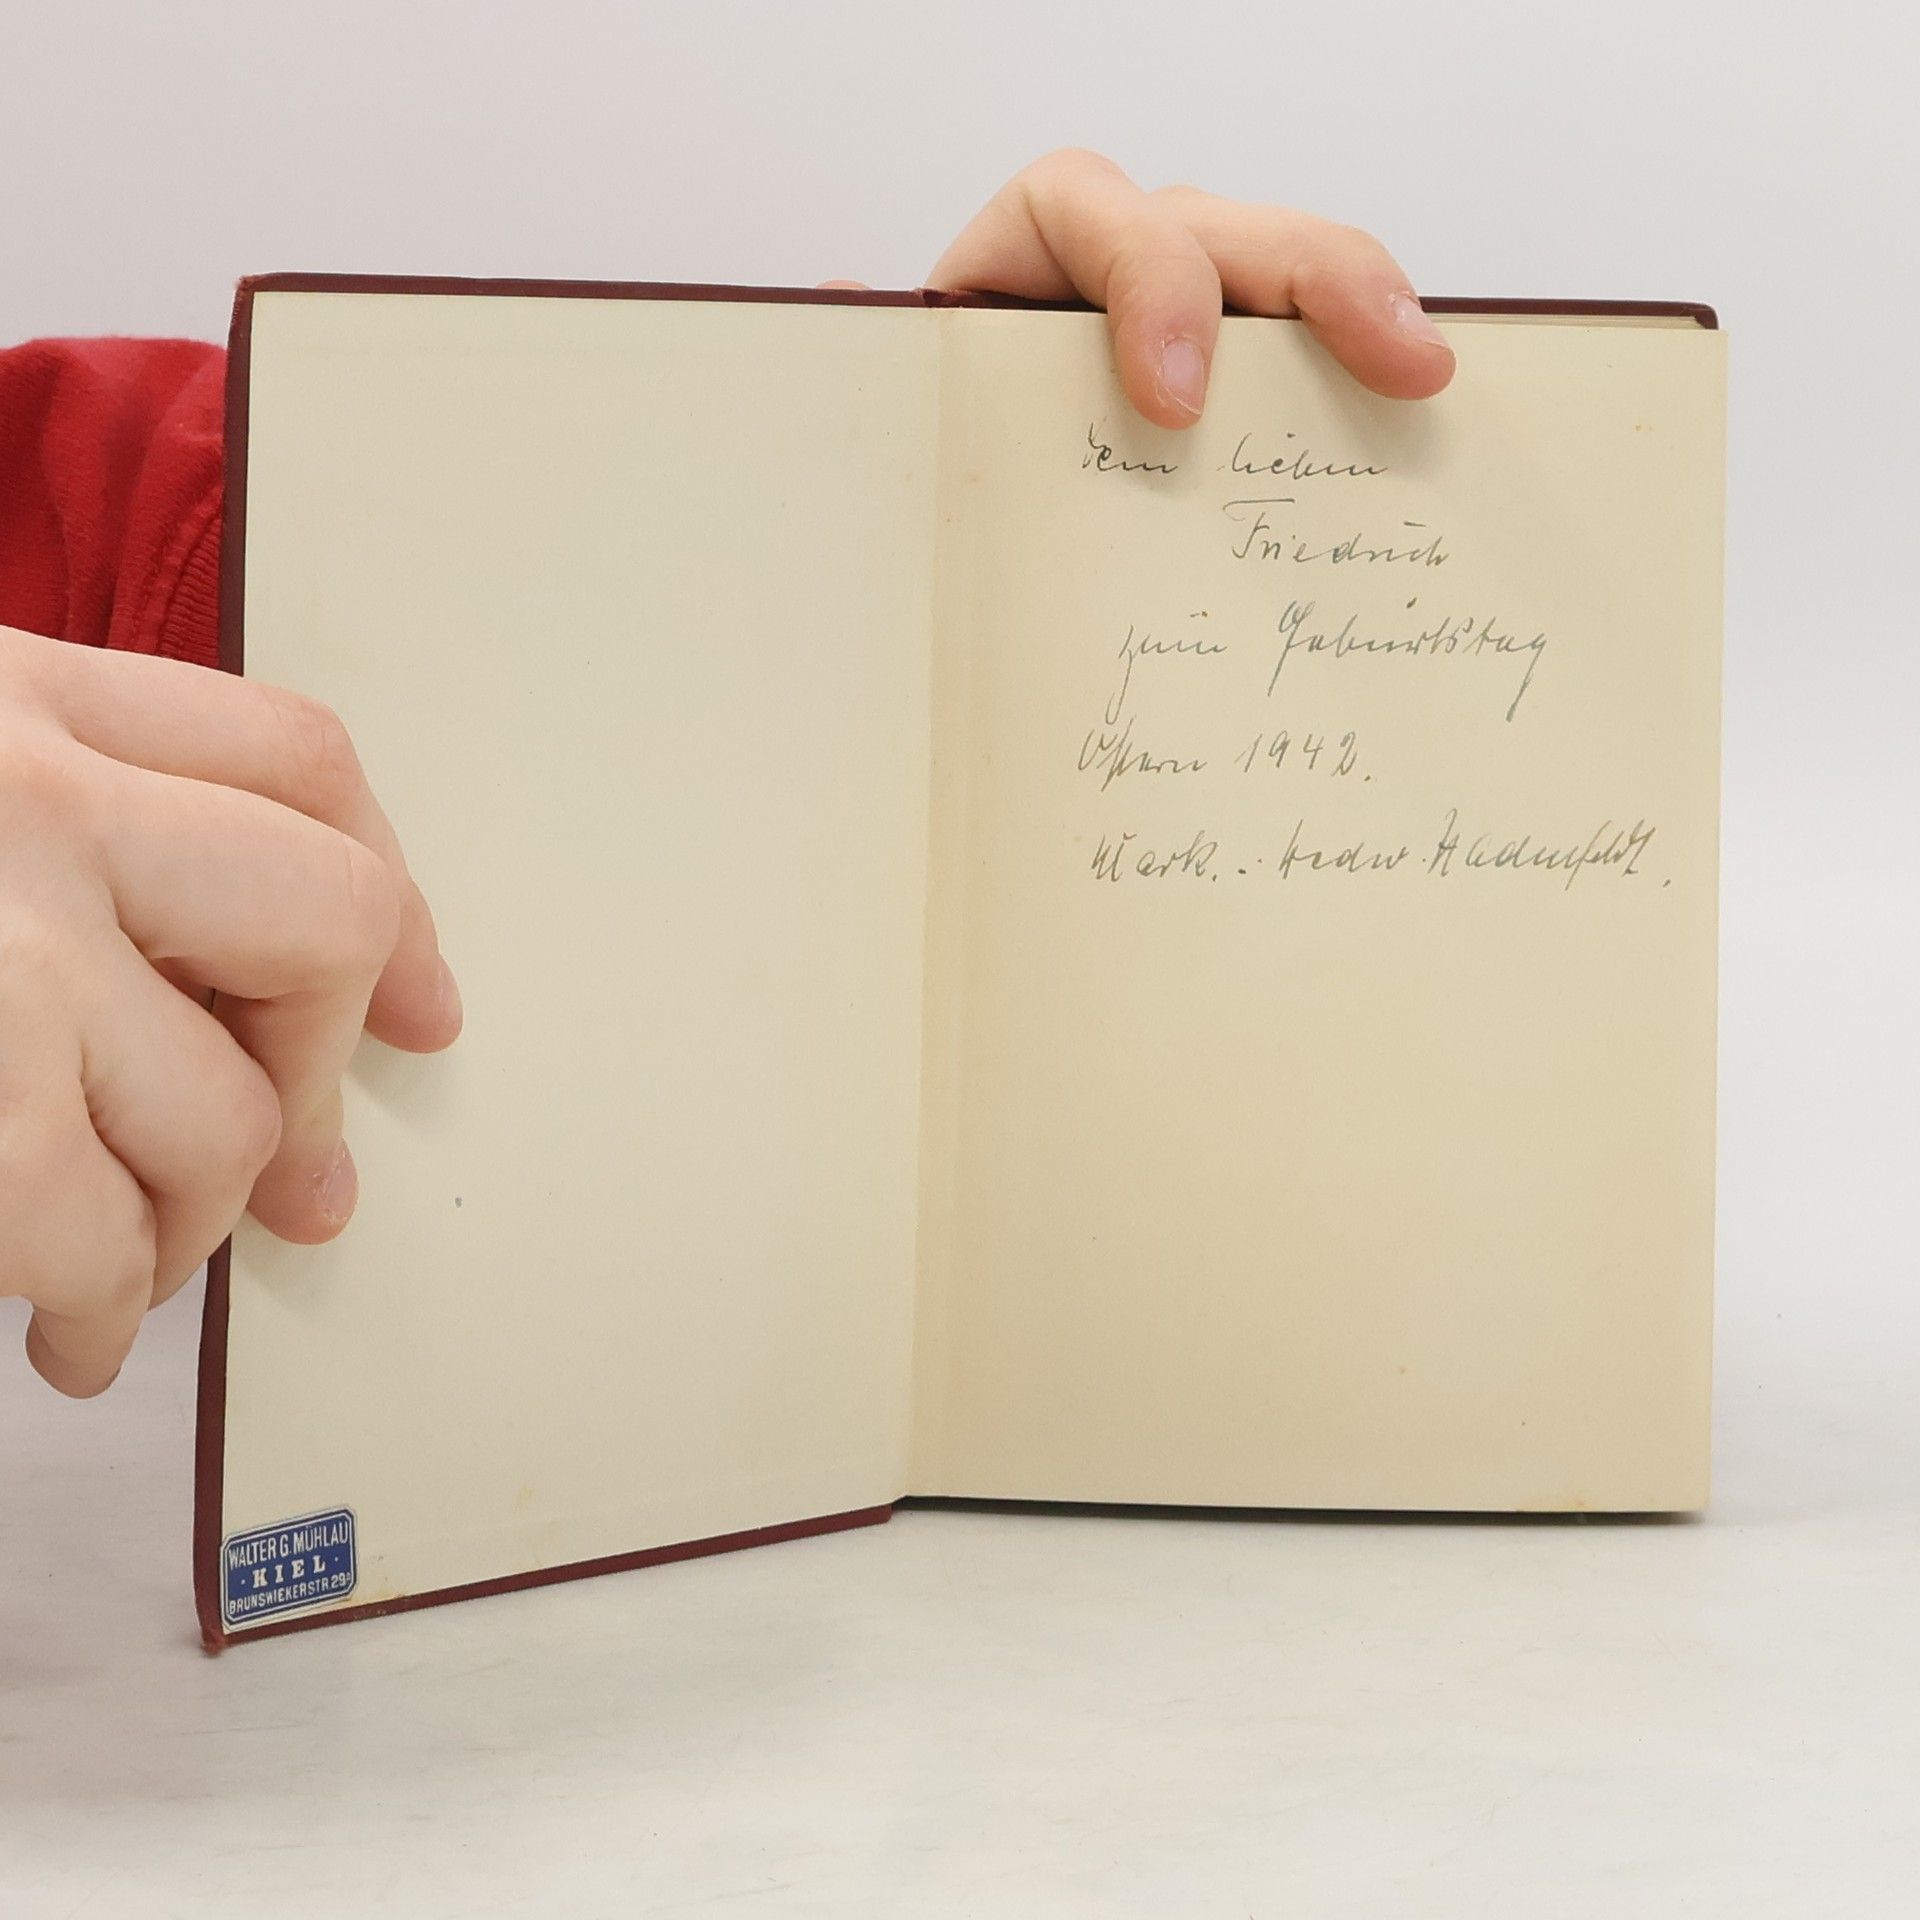 WALTER G. MÜHLAU
· KIEL ·
BRUNSWIEKERSTR. 29a
Dem lieben
Friedrich
zum Geburtstag
Ostern 1942.
Hadenfeldt.